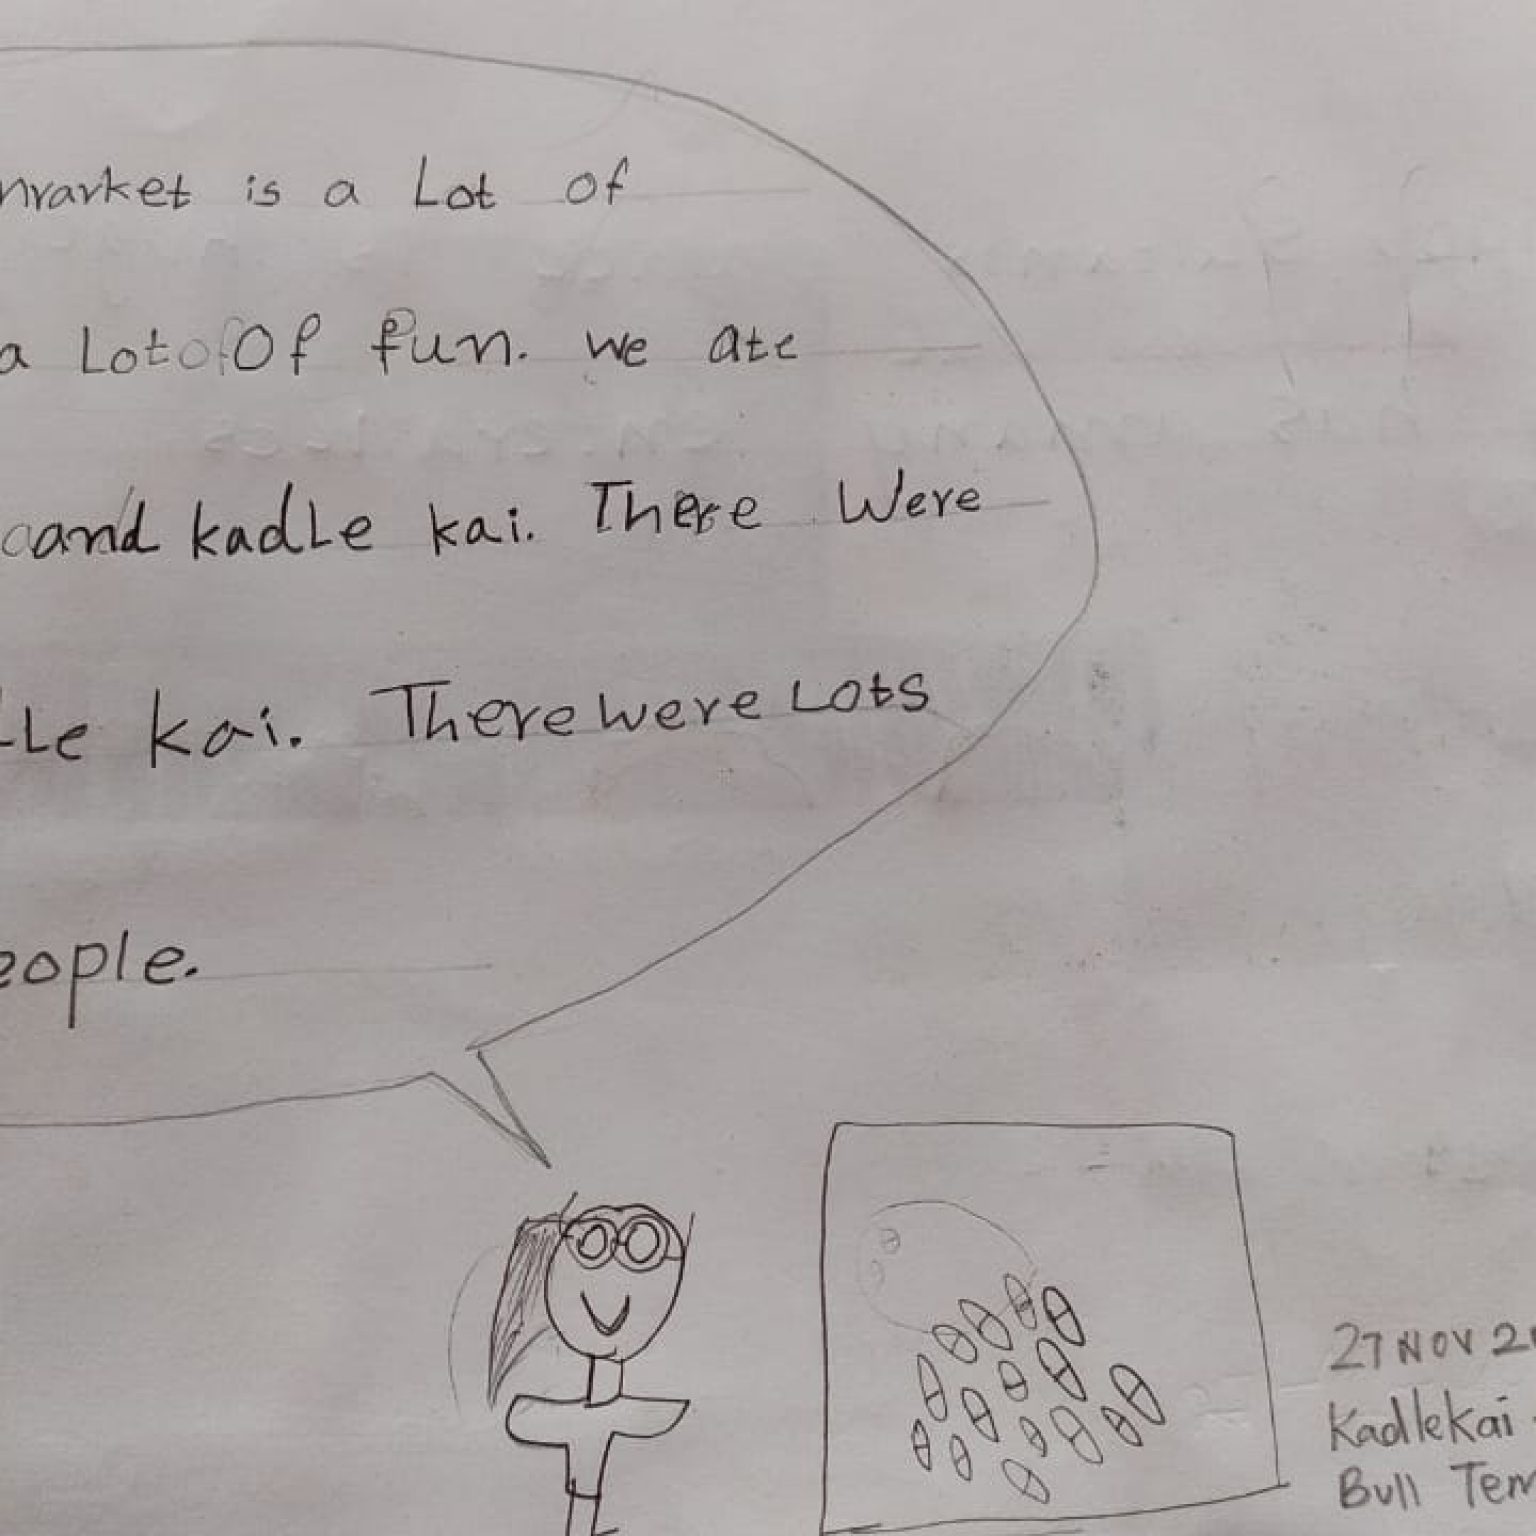 market is a Lot of
a Lot of Of fun. we ate
and kadLe kai. There Were
LLe kai. There were Lots
eople.
27 NOV 2
KadleKai
Bull Tem